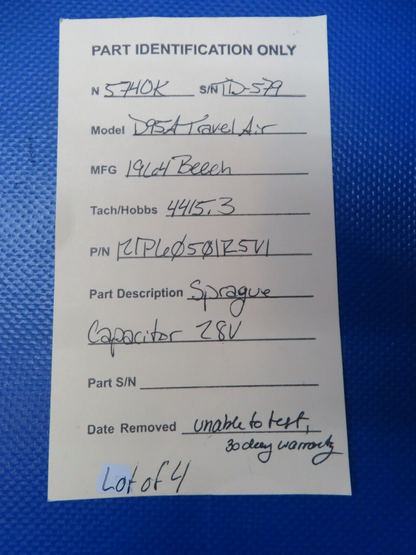 PART IDENTIFICATION ONLY
N 5740K S/N TD-579
Model D95A Travel Air
MFG 1964 Beech
Tach/Hobbs 4415.3
P/N
Part Description Sprague
Capacitor 28V
Part S/N
Date Removed unable to test,
30 day warranty
Lot of 4